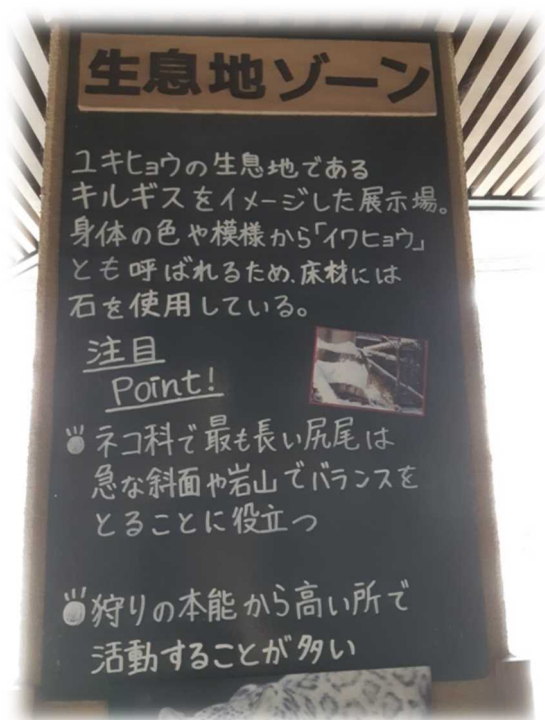 生息地ゾーン
ユキヒョウの生息地である
キルギスをイメージした展示場。
身体の色や模様から「イワヒョウ」
とも呼ばれるため、床材には
石を使用している。
注目
Point!
ネコ科で最も長い尻尾は
急な斜面や岩山でバランスを
とることに役立つ
狩りの本能から高い所で
活動することが多い